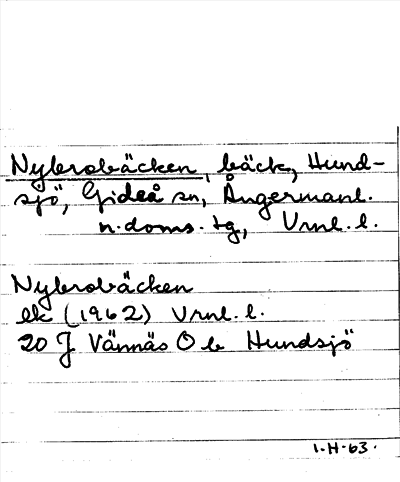 Nybrobäcken, bäck, Hund-
sjö, Gideå sn, Ångermanl.
n. doms. tg, Vrnl. l.
Nybrobäcken
ek (1962) Vrnl. l.
20 J Vännäs O b Hundsjö
1.H.63.